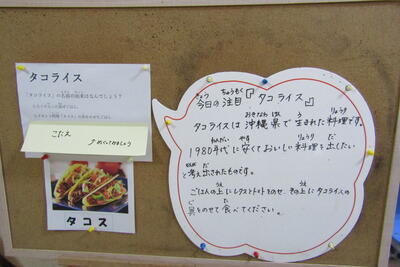 タコライス
「タコライス」の名前の由来はなんでしょう?
こたえ
↗めくってみましょう
タコス
きょう ちゅうもく
今日の注目『タコライス』
おきなわけん う りょうり
タコライスは沖縄県で生まれた料理です。
ねんだい やす りょうり だ
1980年代に安くておいしい料理を出したい
かんが だ
と考え出されたものです。
うえ うえ
ごはんの上にレタスとトマトをのせ、その上にタコライスの
ぐ た
具をのせて食べてください。